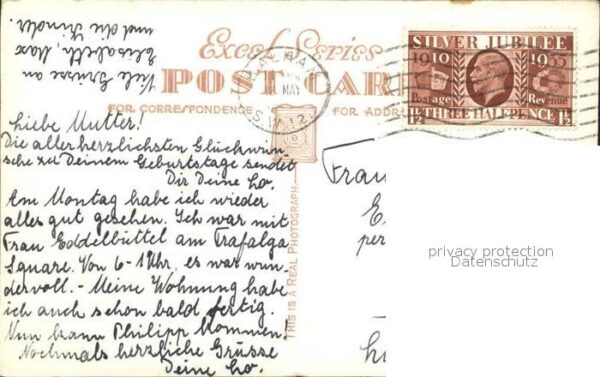 Viele Grüsse an
Elisabeth, Max
und die Kinder.
Excel Series
POST CARD
FOR CORRESPONDENCE
FOR ADDRESS
BALHAM
MAY
S.W.12
SILVER JUBILEE
1910 1935
Postage Revenue
1½ THREE HALFPENCE 1½
Liebe Mutter!
Die allerherzlichsten Glückwün
sche zu Deinem Geburtstage sendet
Dir Deine Lo.
Am Montag habe ich wieder
alles gut gesehen. Ich war mit
Frau Eddelbüttel am Trafalga
Square. Von 6-1 Uhr, es war wun
dervoll. - Meine Wohnung habe
ich auch schon bald fertig.
Nun kann Philipp kommen!
Nochmals herzliche Grüsse
Deine Lo.
THIS IS A REAL PHOTOGRAPH.
Frau
E
per
privacy protection
Datenschutz